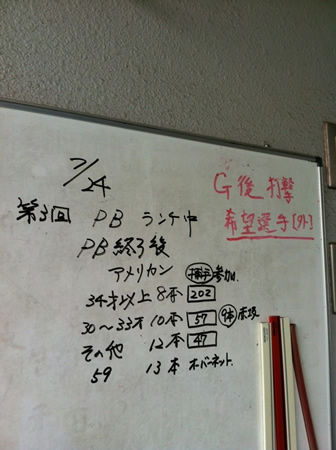 7/24
G後 打撃
希望選手[外]
第3回 PB ランチ中
PB終了後
アメリカン 捕手 参加
34才以上 8本 202
30〜33才 10本 57
その他 12本 47
59 13本 オーバーネット